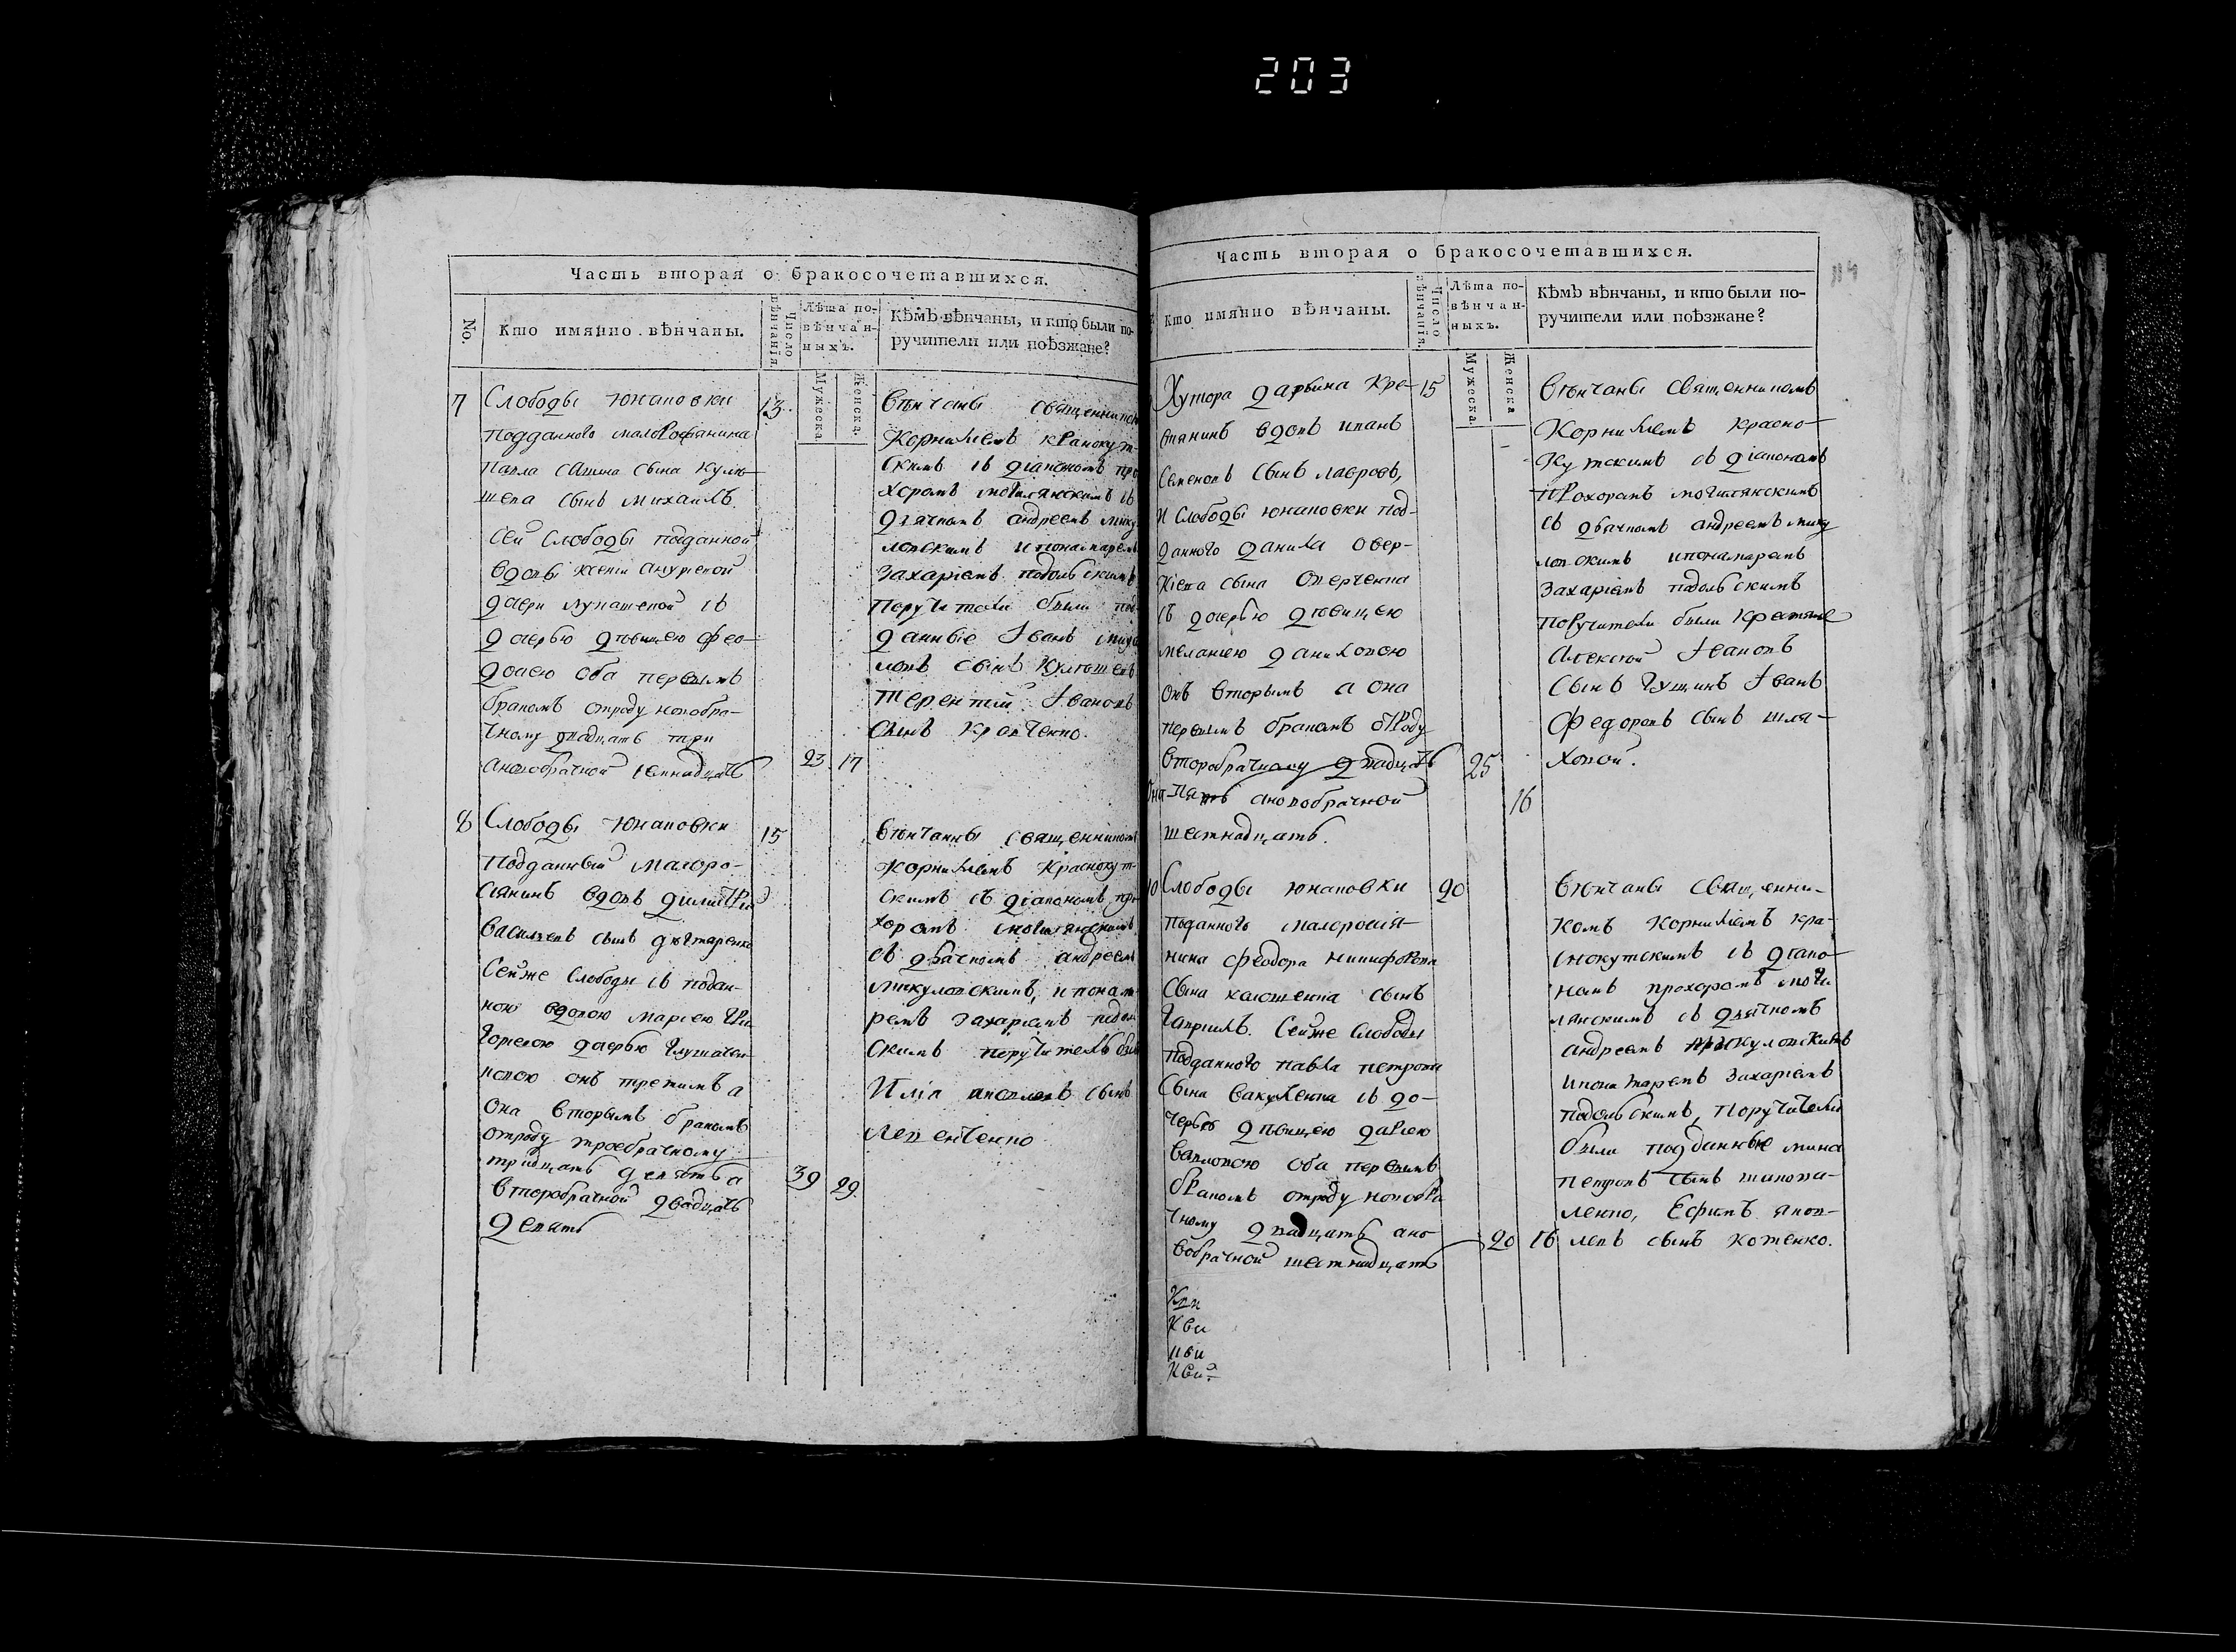 203
Часть вторая о бракосочетавшихся.
No.
Кто имянно вѣнчаны.
Число вѣнчанія.
Лѣта по-
вѣнчан-
ныхъ.
Мужеска.
Женска.
Кѣмъ вѣнчаны, и кто были по-
ручители или поѣзжане?
7
Слободы Юнаковки
13
подданного малоросіянина
Павла сына Кули-
шева сынъ Михаилъ.
Сей Слободы подданной
вдовы
дочери Лукашевой съ
дочерью дѣвицею Фео-
досею оба первымъ
бракомъ отроду новобра-
чному двадцать три
а новобрачной семнадцать
23
17
Вѣнчаны священником
Корнилиемъ Краснокут-
скимъ съ діакономъ про
хоромъ Могилянскимъ съ
дьячкомъ андреемъ мику
ловскимъ и понамаремъ
Захаріемъ подольскимъ
Поручители были под
данные Іванъ
сынъ Кулѣшевъ
терентій Івановъ
сынъ Кравченко.
8
Слободы Юнаковки
15
подданный Малоро-
сіянинъ вдовъ димитрій
Васильевъ сынъ дегтяренко
Сейже Слободы съ подан-
ною вдовою Мариею
дочерью
онъ третимъ а
она вторымъ бракомъ
отроду троебрачному
тридцать девять а
второбрачной двадцать
девять
39
29
Вѣнчанны священником
Корнилиемъ Краснокут-
скимъ съ діакономъ про-
хоромъ могилянскимъ
съ дьячкомъ андреемъ
микуловскимъ, и понама-
ремъ Захаріемъ подол
скимъ поручитель был
Илія сынъ
Левенченко
Часть вторая о бракосочетавшихся.
Кто имянно вѣнчаны.
Число вѣнчанія.
Лѣта по-
вѣнчан-
ныхъ.
Мужеска.
Женска
Кѣмъ вѣнчаны, и кто были по-
ручители или поѣзжане?
Хутора Дарьина Кре-
15
стянинъ вдовъ Иванъ
Семеновъ сынъ Лавровъ,
и Слободы Юнаковки под-
данного Данила Авер-
кіева сына Оверченка
съ дочерью дѣвицею
меланіею Даниловою
онъ вторымъ а она
первымъ бракомъ отроду
второбрачному двадцать
25
пять а новобрачной
16
шестнадцать.
Вѣнчаны священникомъ
Корнилиемъ Красно-
кутскимъ съ діакономъ
Прохоромъ могилянскимъ
съ дьячкомъ андреемъ мику
ловскимъ и понамаремъ
Захаріемъ подольскимъ
поручители были Крестяне
Алексѣй Івановъ
сынъ Гущинъ Іванъ
Федоровъ сынъ шля-
ховой.
10
Слободы Юнаковки
20
поданного малоросія-
нина Феодора Никифорова
сына калюшенка сынъ
Гавриилъ. Сейже Слободы
подданного павла петрова
сына Вакуленка съ до-
черью дѣвицею даріею
Павловою оба первымъ
бракомъ отроду новобра
чному двадцать а но-
вобрачной шестнадцать
20
16
Вѣнчаны священни-
комъ Корнилиемъ Кра-
снокутскимъ съ діако-
номъ прохоромъ моги
лянскимъ съ дьячкомъ
андреемъ микуловскимъ
и понамаремъ Захаріемъ
подольскимъ, поручители
были подданные мина
петровъ сынъ шапова-
ленко, Ефимъ яков-
левъ сынъ котенко.